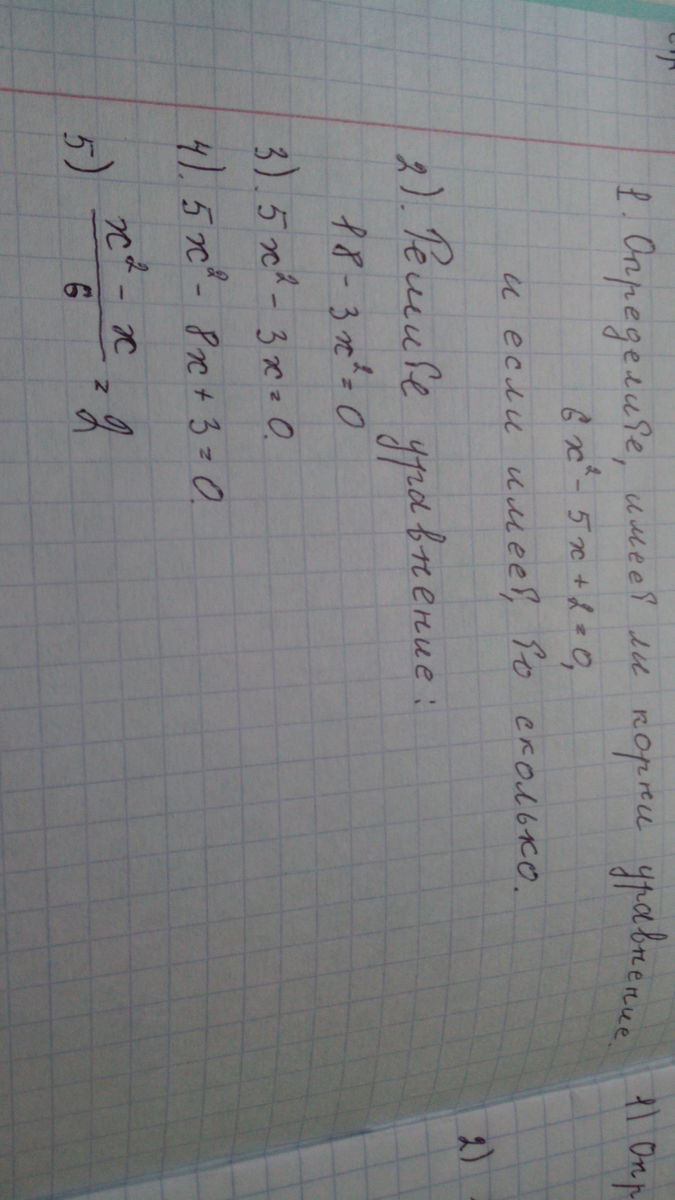 1. Определите, имеет ли корни уравнение.
6x² - 5x + 2 = 0,
и если имеет, то сколько.
2). Решите уравнение:
18 - 3x² = 0
3). 5x² - 3x = 0.
4). 5x² - 8x + 3 = 0.
5) x² - x
6
= 2
1) Опр
2)